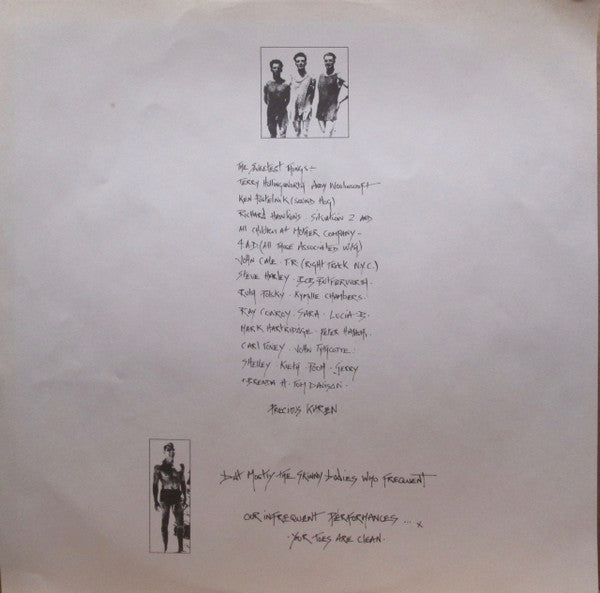 The Sweetest Things -
Terry Hollingsworth Andy Woolliscroft
Ken (Sound Hog)
Richard Hawkins · Situation 2 and
all children at Mother Company -
4.A.D. (All those associated w/4)
John Cale · T.R. (Right Track N.Y.C.)
Steve Harley · Bob Butterworth
Rudy Tucky · Kymmie Chambers
Ray Conroy · Sara · Lucia-B.
Mark Hartridage · Peter
Carl · John Tyncotte
Shelley · Gerry
· Brenda H · Tom Dawson ·
Precious Karen
but mostly the skinny bodies who frequent
our infrequent performances ... x
· Your toes are clean ·